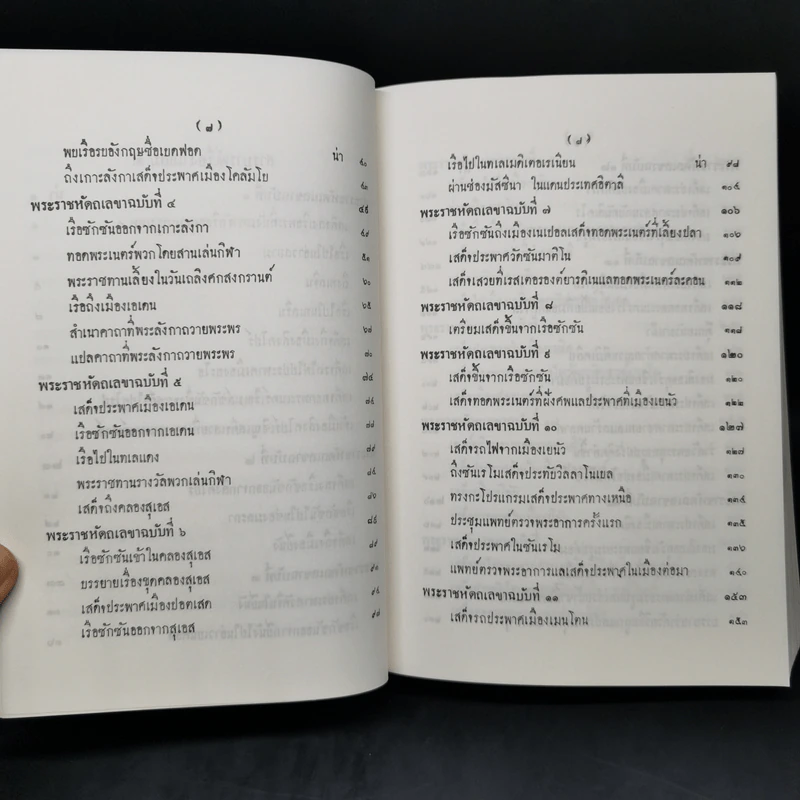 ( ๗ )
พบเรือรบอังกฤษชื่อเยดฟอด น่า ๔๐
ถึงเกาะลังกาเสด็จประพาศเมืองโคลัมโบ ๔๓
พระราชหัดถเลขาฉบับที่ ๔ ๔๕
เรือซักซันออกจากเกาะลังกา ๔๙
ทอดพระเนตร์พวกโดยสานเล่นกิฬา ๕๑
พระราชทานเลี้ยงในวันเถลิงศกสงกรานต์ ๖๐
เรือถึงเมืองเอเดน ๖๕
สำเนาคาถาที่พระลังกาถวายพระพร ๖๗
แปลคาถาที่พระลังกาถวายพระพร ๗๐
พระราชหัดถเลขาฉบับที่ ๕ ๗๔
เสด็จประพาศเมืองเอเดน
เรือซักซันออกจากเอเดน
เรือไปในทเลแดง
พระราชทานรางวัลพวกเล่นกิฬา
เสด็จถึงคลองสุเอส
พระราชหัดถเลขาฉบับที่ ๖
เรือซักซันเข้าในคลองสุเอส
บรรยายเรื่องขุดคลองสุเอส
เสด็จประพาศเมืองปอตเสด
เรือซักซันออกจากสุเอส
( ๘ )
เรือไปในทเลเมดิเตอเรเนียน น่า ๙๘
ผ่านช่องมัสซินา ในแดนประเทศอิตาลี ๑๐๔
พระราชหัดถเลขาฉบับที่ ๗ ๑๐๖
เรือซักซันถึงเมืองเนเปอลเสด็จทอดพระเนตร์ที่เลี้ยงปลา ๑๐๖
เสด็จประพาศวัดซันมาติโน ๑๐๙
เสด็จเสวยที่เรสเตอรองต์ยารดิเนแลทอดพระเนตร์ละคอน ๑๑๒
พระราชหัดถเลขาฉบับที่ ๘ ๑๑๘
เตรียมเสด็จขึ้นจากเรือซักซัน ๑๑๘
พระราชหัดถเลขาฉบับที่ ๙ ๑๒๐
เสด็จขึ้นจากเรือซักซัน ๑๒๐
เสด็จทอดพระเนตร์ที่ฝังศพแลประพาศที่เมืองเยนัว ๑๒๒
พระราชหัดถเลขาฉบับที่ ๑๐ ๑๒๗
เสด็จรถไฟจากเมืองเยนัว ๑๒๗
ถึงซันเรโมเสด็จประทับวิลลาโนเบล ๑๓๐
ทรงกะโปรแกรมเสด็จประพาศทางเหนือ ๑๓๔
ประชุมแพทย์ตรวจพระอาการครั้งแรก ๑๓๕
เสด็จประพาศในซันเรโม ๑๓๖
แพทย์ตรวจพระอาการแลเสด็จประพาศในเมืองต่อมา ๑๔๐
พระราชหัดถเลขาฉบับที่ ๑๑ ๑๕๓
เสด็จรถประพาศเมืองเมนโตน ๑๕๓